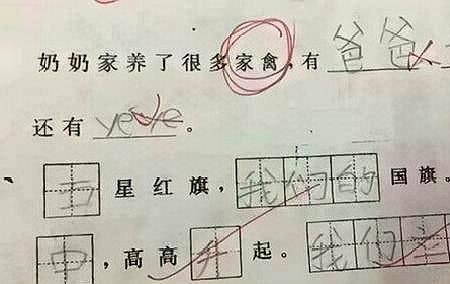 奶奶家养了很多家禽,有爸爸、
还有yeye。
五星红旗,我们的国旗。
中,高高升起。我们